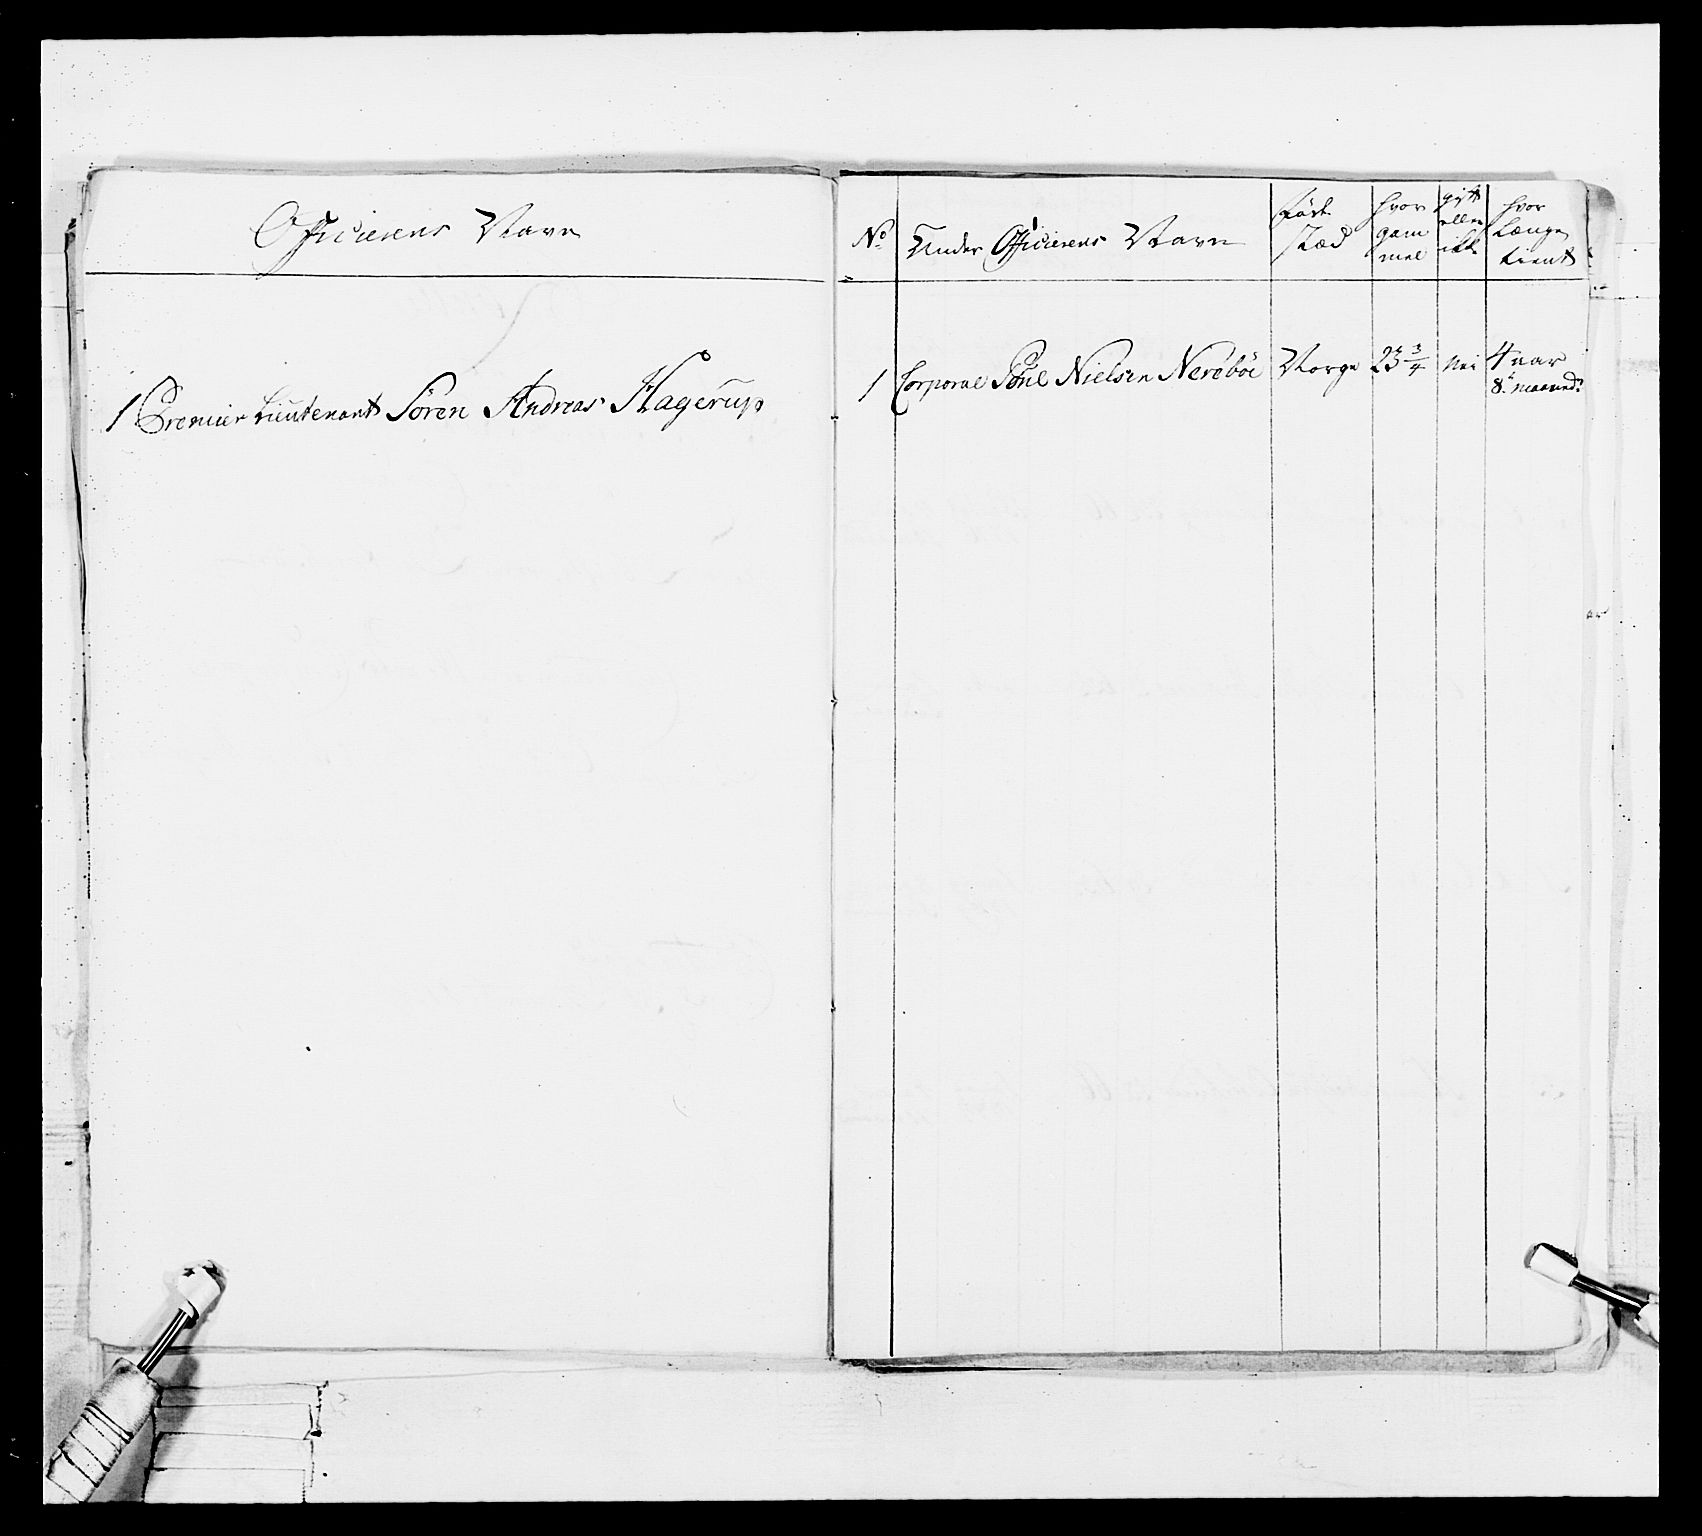 Officierens Navn
1 Premier Lieutenant Sören Andreas Hagerup
No
Under Officierens Navn
föde
stæd
hvor
gam
mel
gift
eller
ikke
hvor
længe
tient
1 Corporal Poul Nielsen Neröböe Norge 23 3/4 Nei 4 aar
8 maaned